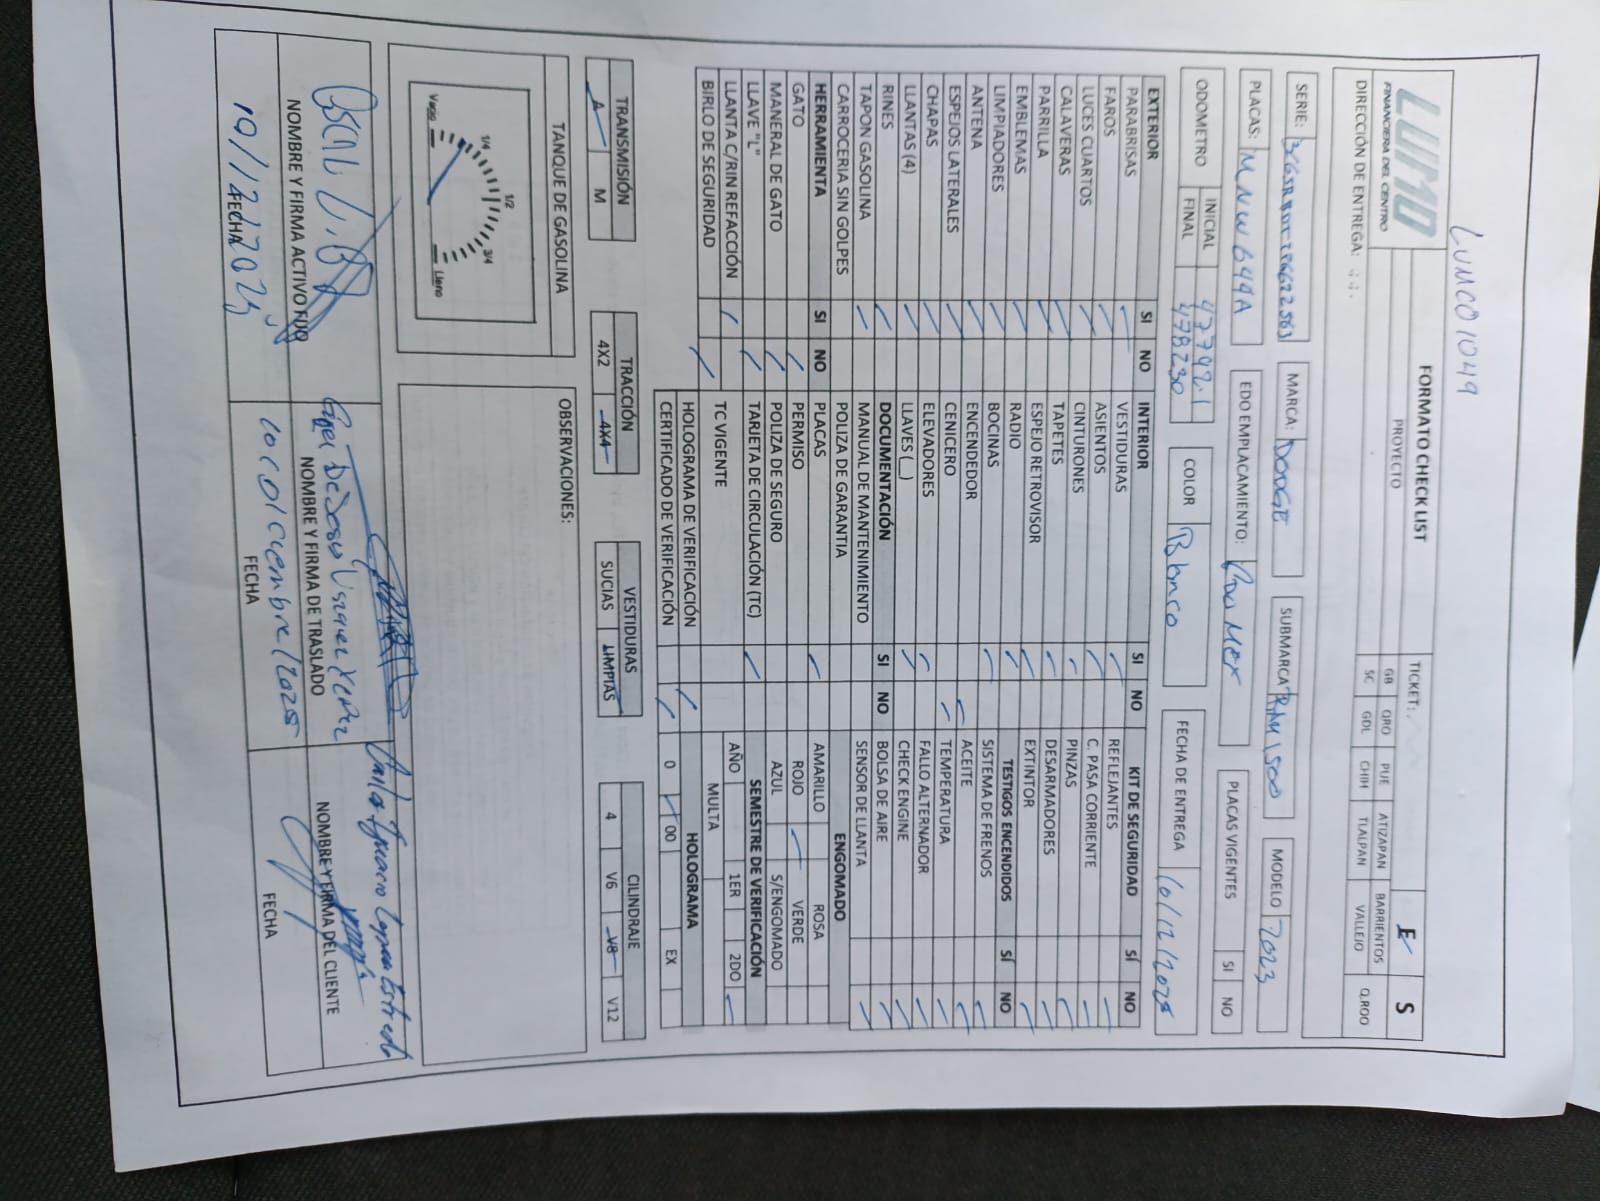 LUMCO1049
LUMO
FINANCIERA DEL CENTRO
FORMATO CHECK LIST
PROYECTO
TICKET:
E
S
GB QRO PUE ATIZAPAN BARRIENTOS Q.ROO
SC GDL CHIH TLALPAN VALLEJO
DIRECCIÓN DE ENTREGA:
SERIE:
MARCA: DODGE
SUBMARCA: RAM 1500
MODELO 2023
PLACAS: MNW644A
EDO EMPLACAMIENTO: Edo Mex
PLACAS VIGENTES SI NO
ODOMETRO
INICIAL
FINAL 478230
COLOR Blanco
FECHA DE ENTREGA 10/12/2025
EXTERIOR SI NO
PARABRISAS
FAROS
LUCES CUARTOS
CALAVERAS
PARRILLA
EMBLEMAS
LIMPIADORES
ANTENA
ESPEJOS LATERALES
CHAPAS
LLANTAS (4)
RINES
TAPON GASOLINA
CARROCERIA SIN GOLPES
HERRAMIENTA SI NO
GATO
MANERAL DE GATO
LLAVE "L"
LLANTA C/RIN REFACCIÓN
BIRLO DE SEGURIDAD
INTERIOR SI NO
VESTIDURAS
ASIENTOS
CINTURONES
TAPETES
ESPEJO RETROVISOR
RADIO
BOCINAS
ENCENDEDOR
CENICERO
ELEVADORES
LLAVES (__)
DOCUMENTACIÓN SI NO
MANUAL DE MANTENIMIENTO
POLIZA DE GARANTIA
PLACAS
PERMISO
POLIZA DE SEGURO
TARJETA DE CIRCULACIÓN (TC)
TC VIGENTE
HOLOGRAMA DE VERIFICACIÓN
CERTIFICADO DE VERIFICACIÓN
KIT DE SEGURIDAD SÍ NO
REFLEJANTES
C. PASA CORRIENTE
PINZAS
DESARMADORES
EXTINTOR
TESTIGOS ENCENDIDOS SÍ NO
SISTEMA DE FRENOS
ACEITE
TEMPERATURA
FALLO ALTERNADOR
CHECK ENGINE
BOLSA DE AIRE
SENSOR DE LLANTA
ENGOMADO
AMARILLO ROSA
ROJO VERDE
AZUL S/ENGOMADO
SEMESTRE DE VERIFICACIÓN
AÑO 1ER 2DO
MULTA
HOLOGRAMA
0 00 EX
TRANSMISIÓN
A M
TRACCIÓN
4X2 4X4
VESTIDURAS
SUCIAS LIMPIAS
CILINDRAJE
4 V6 V8 V12
TANQUE DE GASOLINA
Vacio 1/4 1/2 3/4 Lleno
OBSERVACIONES:
NOMBRE Y FIRMA ACTIVO FIJO
10/12/2025
FECHA
NOMBRE Y FIRMA DE TRASLADO
10 diciembre/2025
FECHA
Ignacio Estrada
NOMBRE Y FIRMA DEL CLIENTE
FECHA